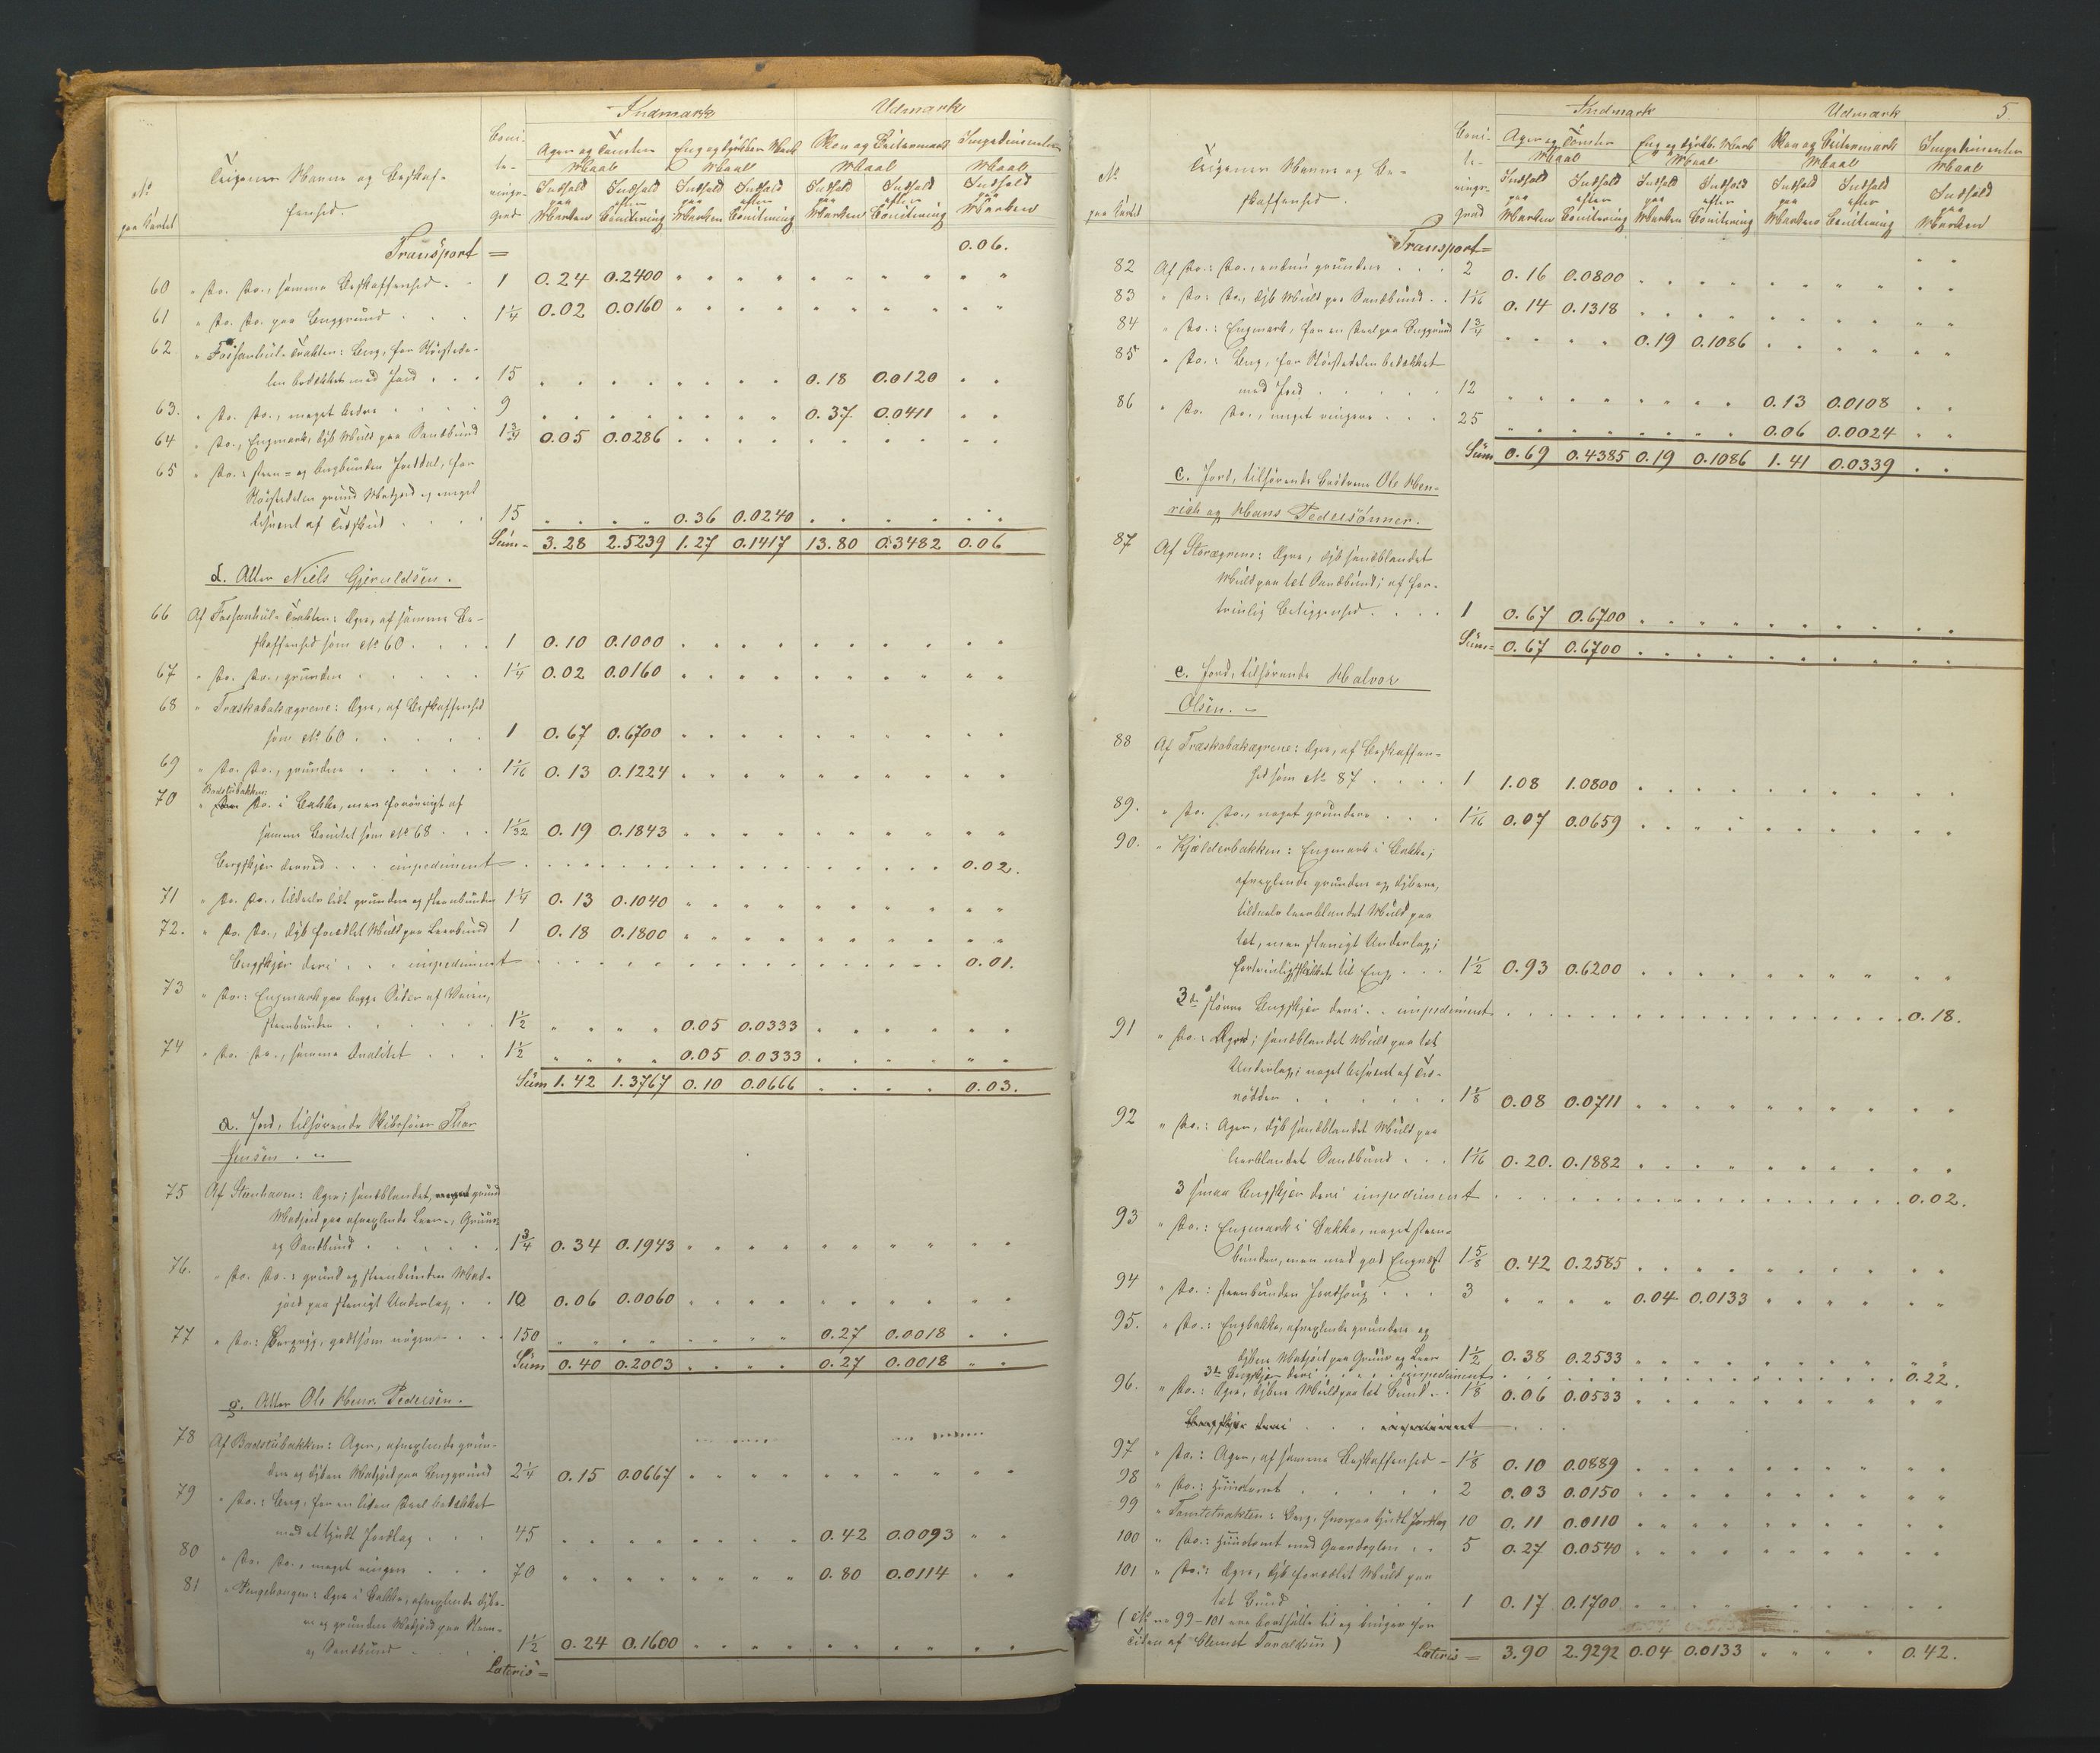 Indmark Udmark
No. paa Kartet Teigenes Navne og Beskaffenhed. Boniteringsgrad Ager og Tomter Maal Eng og dyrkbar Mark Maal Skov og Beitesmark Maal Impedimenter Maal
Indhold paa Marken Indhold efter Bonitering Indhold paa Marken Indhold efter Bonitering Indhold paa Marken Indhold efter Bonitering Indhold paa Marken
Transport = 0.06.
60 " Do. Do., samme Beskaffenhed . . 1 0.24 0.2400
61 " Do. Do. paa Berggrund . . . 1 1/4 0.02 0.0160
62 " Trakten: Berg, for Størstede-
len bedækket med Jord . . . 15 0.18 0.0120
63. " Do. Do., meget bedre . . . . 9 0.37 0.0411
64 " Do., Engmark, dyb Muld paa Sandbund 1 3/4 0.05 0.0286
65 " Do.: steen- og bergbunden Jorddal, for
Størstedelen grund Madjord og meget
besværet af . . . . 15 0.36 0.0240
Sum = 3.28 2.5239 1.27 0.1417 13.80 0.3482 0.06
d. Atter Niels Gjeruldsen.
66 Af Trakten: Ager, af samme Be-
skaffenhed som No 60 . . . . 1 0.10 0.1000
67 " Do. Do., grundere . . . . . 1 1/4 0.02 0.0160
68 " Træskobakagrene: Ager, af Beskaffenhed
som No 60 . . . . . 1 0.67 0.6700
69 " Do. Do., grundere . . . . . 1 1/16 0.13 0.1224
Badstubakken:
70 " Do. i Bakke, men forøvrigt af
samme Bonitet som No 68 . . . 1 1/32 0.19 0.1843
Bergskjær derved . . . impediment 0.02.
71 " Do. Do., tildeels lidt grundere og steenbunden 1 1/4 0.13 0.1040
72. " Do. Do., dyb forædlet Muld paa Leerbund 1 0.18 0.1800
Bergskjær deri . . . impediment 0.01.
73 " Do.: Engmark paa begge Sider af Veien,
steenbunden . . . . . . 1 1/2 0.05 0.0333
74 " Do. Do., samme Qvalitet . . . 1 1/2 0.05 0.0333
Sum 1.42 1.3767 0.10 0.0666 0.03.
a. Jord, tilhørende Skibsfører Thor
Jensen . "
75 Af Steenhaven: Ager; sandblandet, grund
Madjord paa afvexlende Leer-, Gruus-
og Sandbund . . . . . . 1 3/4 0.34 0.1943
76. " Do. Do.: grund og steenbunden Mad-
jord paa stenigt Underlag . . 10 0.06 0.0060
77 " Do.: Bergryg, godtsom nøgen . . . 150 0.27 0.0018
Sum 0.40 0.2003 0.27 0.0018
g. Atter Ole Henr. Pedersen.
78 Af Badstubakken: Ager, afvexlende grun-
dere og dybere Madjord paa Berggrund 2 1/4 0.15 0.0667
79 " Do.: Berg, for en liden Deel bedækket
med et tyndt Jordlag . . . 45 0.42 0.0093
80 " Do. Do., meget ringere . . . 70 0.80 0.0114
81 " Pengehaugen: Ager i Bakke; afvexlende dybe-
re og grundere Madjord paa Steen-
og Sandbund . . . . . . 1 1/2 0.24 0.1600
Lateris =
5.
Indmark Udmark
No. paa Kartet Teigenes Navne og Be-
skaffenhed. Boniteringsgrad Ager og Tomter Maal Eng og dyrkb. Mark Maal Skov og Beitesmark Maal Impedimenter Maal
Indhold paa Marken Indhold efter Bonitering Indhold paa Marken Indhold efter Bonitering Indhold paa Marken Indhold efter Bonitering Indhold paa Marken
Transport =
82 Af Do.: Do., endnu grundere . . . 2 0.16 0.0800
83 " Do.: Do., dyb Muld paa Sandbund . . 1 1/16 0.14 0.1318
84 " Do.: Engmark, for en Deel paa Berggrund 1 3/4 0.19 0.1086
85 " Do.: Berg, for Størstedelen bedækket
med Jord . . . . . . 12 0.13 0.0108
86 " Do. Do., meget ringere . . . 25 0.06 0.0024
Sum 0.69 0.4385 0.19 0.1086 1.41 0.0339
c. Jord, tilhørende Brødrene Ole Hen-
rich og Hans Pedersønner.
87 Af Storagrene: Ager, dyb sandblandet
Muld paa tæt Sandbund; af for-
trinlig Beliggenhed . . . . 1 0.67 0.6700
Sum = 0.67 0.6700
e. Jord, tilhørende Halvor
Olsen. "
88 Af Træskobakagrene: Ager, af Beskaffen-
hed som No 87 . . . . 1 1.08 1.0800
89. " Do. Do., noget grundere . . . 1 1/16 0.07 0.0659
90. " Kjælderbakken: Engmark i Bakke;
afvexlende grundere og dybere,
tildeels leerblandet Muld paa
tæt, men stenigt Underlag;
fortrinlig skikket til Eng . . . 1 1/2 0.93 0.6200
3de større Bergskjær deri . . impediment 0.18.
91 " Do.: Ager; sandblandet Muld paa tæt
Underlag; noget besværet af
. . . . . . 1 1/8 0.08 0.0711
92 " Do.: Ager, dyb sandblandet Muld paa
leerblandet Sandbund . . . 1 1/16 0.20. 0.1882
3 smaa Bergskjær deri impediment 0.02.
93 " Do.: Engmark i Bakke, noget steen-
bunden, men med god Engvæxt 1 5/8 0.42 0.2585
94 " Do.: steenbunden Jordhoug . . . 3 0.04 0.0133
95. " Do.: Engbakke, afvexlende grundere og
dybere Madjord paa Gruus og Leer 1 1/2 0.38 0.2533
3de Bergskjær deri . . . . impediment 0.22.
96. " Do.: Ager, dybere Muld paa tæt Bund . . 1 1/8 0.06 0.0533
Bergskjær deri . . . impediment
97 " Do.: Ager, af samme Beskaffenhed - 1 1/8 0.10 0.0889
98 " Do.: Huustomt . . . . . . 2 0.03 0.0150
99 " Tomtetrakten: Berg, hvorpaa tyndt Jordlag 10 0.11 0.0110
100 " Do.: Huustomt med Gaardsplds . . 5 0.27 0.0540
101 " Do.: Ager, dyb forædlet Muld paa
tæt Bund . . . . . . 1 0.17 0.1700
(No ne 99-101 ere bortfæstede til og bruges for
Tiden af Clemet Taraldsen) Lateris = 3.90 2.9292 0.04 0.0133 0.42.